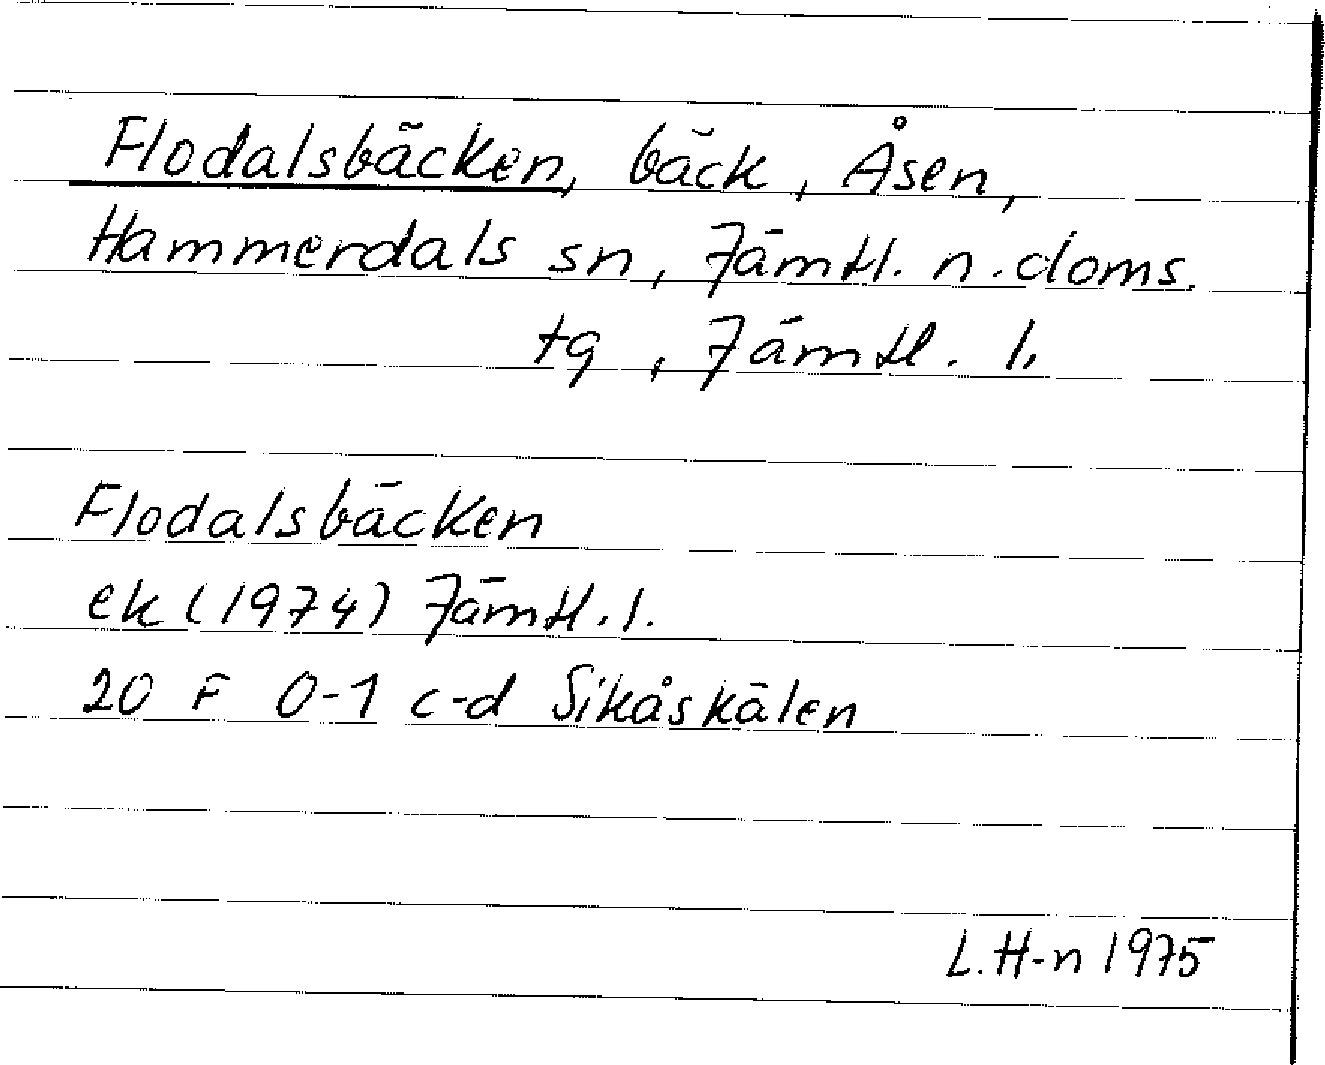 Flodalsbäcken, bäck, Åsen,
Hammerdals sn, Jämtl. n. doms.
tg, Jämtl. l.
Flodalsbäcken
ek (1974) Jämtl. l.
20 F 0-1 c-d Sikåskälen
L. H-n 1975